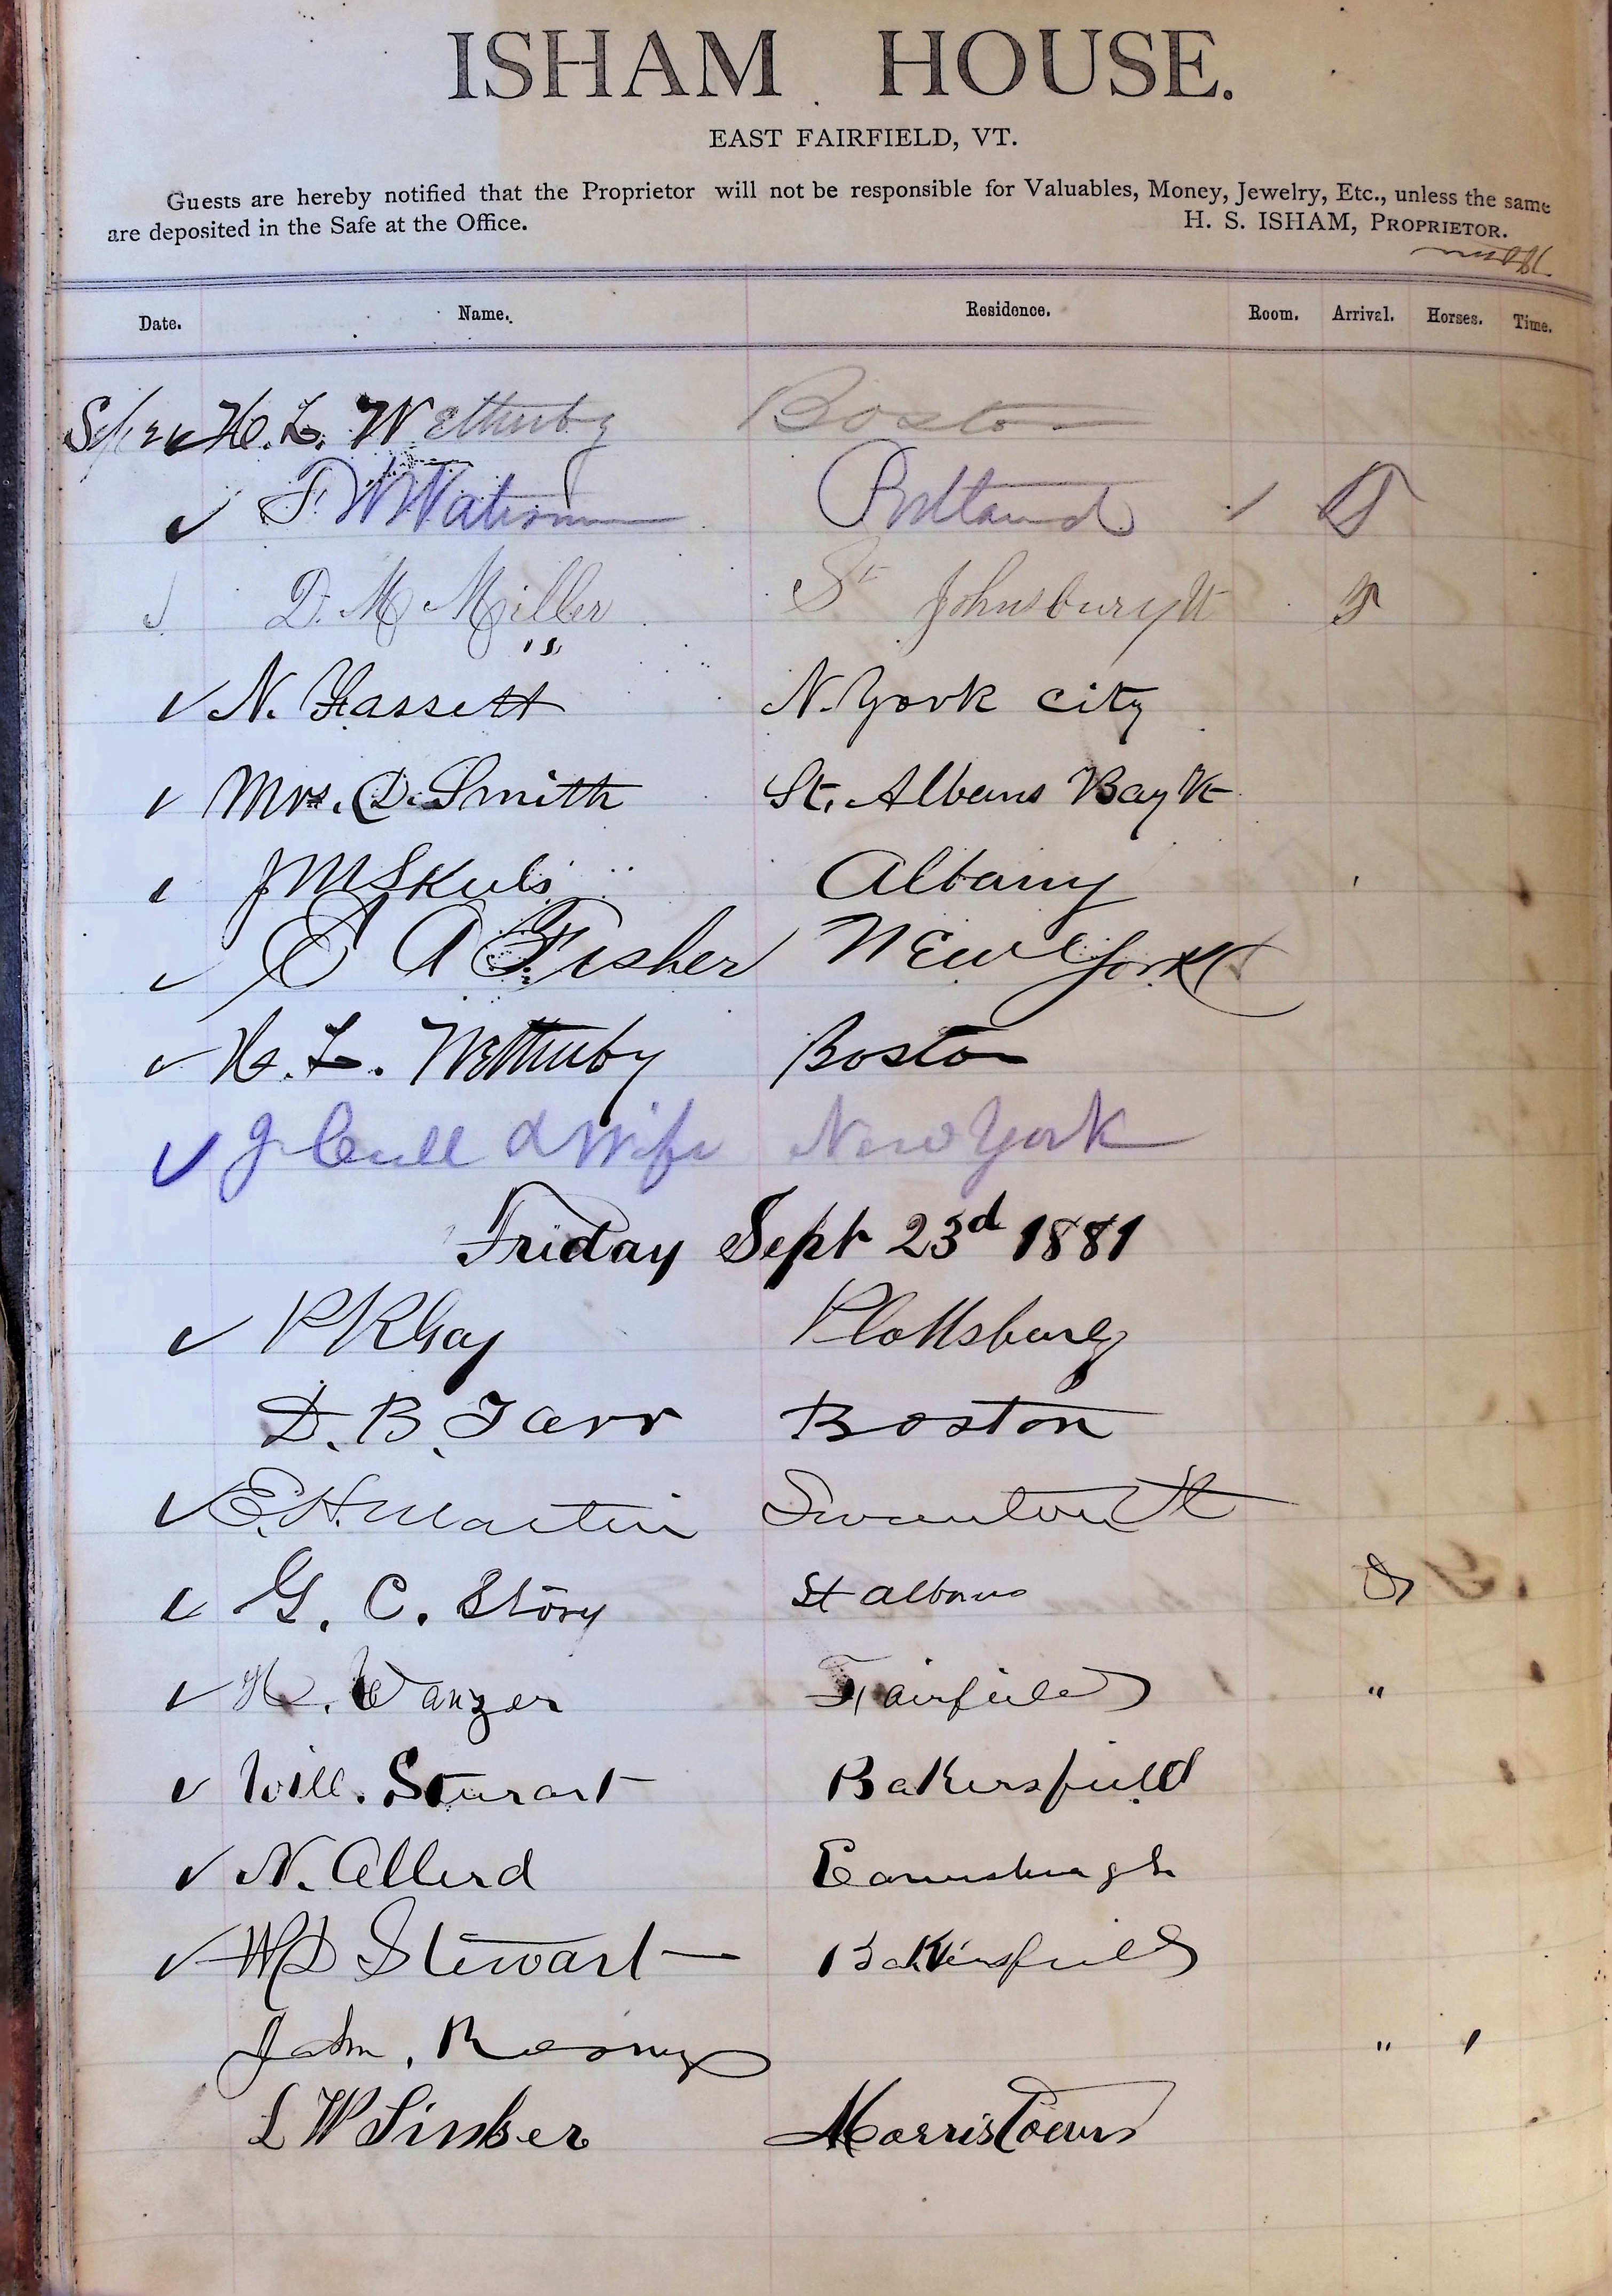 ISHAM HOUSE.
EAST FAIRFIELD, VT.
Guests are hereby notified that the Proprietor will not be responsible for Valuables, Money, Jewelry, Etc., unless the same
are deposited in the Safe at the Office. H. S. ISHAM, PROPRIETOR.
Date. Name. Residence. Room. Arrival. Horses. Time.
H. L. Wetherby Boston
F. W. Watson Portland
D. M. Miller St Johnsbury Vt
N. Fassett N. York city
Mrs. D. Smith St. Albans Bay Vt
J M Albany
E A Fisher New York
H. L. Wetherby Boston
J Cull & Wife New York
Friday Sept 23d 1881
P R Gay Plattsburg
D. B. Tarr Boston
E. H. Martin Swanton Vt
G. C. Story St albans
H. Wanzer Fairfield "
Will. Sturart Bakersfield
N. Allerd
W D Stewart Bakersfield
John, "
L W Morristown